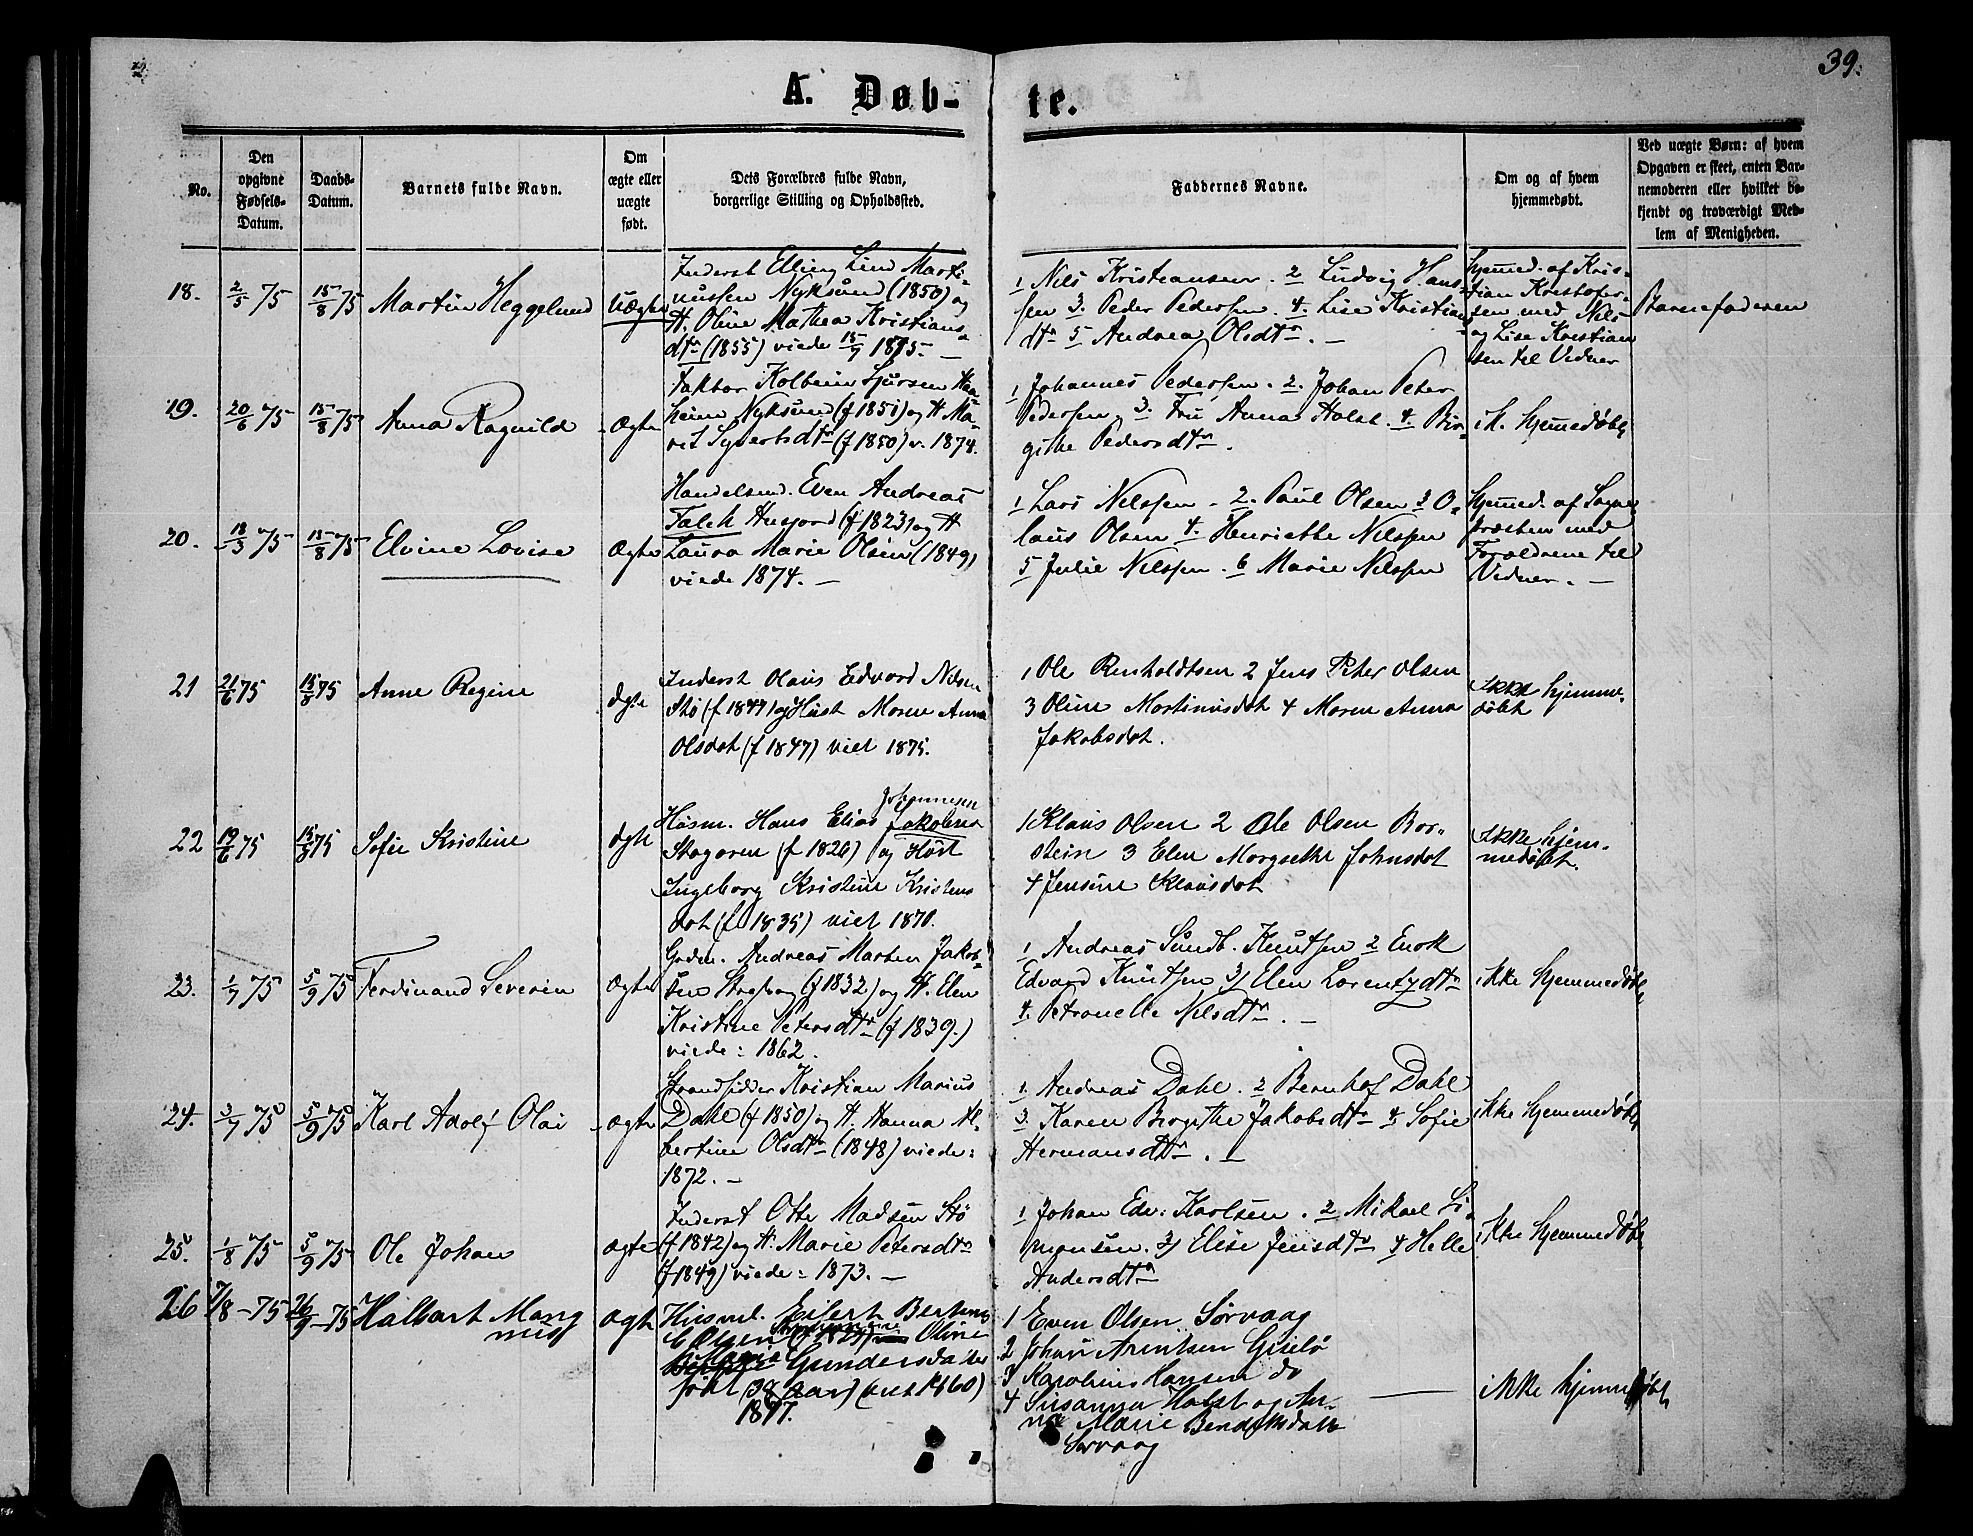 39.
A. Døb-
te.
No.
Den opgivne Fødsels-Datum.
Daabs-Datum.
Barnets fulde Navn.
Om ægte eller uægte født.
Dets Forældres fulde Navn, borgerlige Stilling og Opholdssted.
Faddernes Navne.
Om og af hvem hjemmedøbt.
Ved uægte Børn: af hvem Opgaven er skeet, enten Barnemoderen eller hvilket bekjendt og troværdigt Medlem af Menigheden.
18. 2/5 75 15/8 75 Martin Heggelund Uægte
Inderst Elling Lind Marti-
nussen Nyksund (1850) og
H. Oline Mathea Kristians-
dtr (1855) viede 15/7 1875. —
1 Nils Kristiansen. 2 Ludvig Hans-
sen 3. Peder Pedersen. 4. Lise Kristian
dtr 5 Andrea Olsdtr. —
hjemmed. af Kris-
tian Kristofer-
sen med Nils
og Lise Kristian
sen til Vidner
Barnefaderen
19. 20/6 75 15/8 75 Anna Ragnild Ægte
Faktor Kolbein Sjursen
heim Nyksund (f 1851) og H Ma-
rit Syvertsdtr (f 1850) v. 1874.
1 Johannes Pedersen. 2. Johan Peter
Pedersen, 3. Fru Anna Holst. 4. Bir-
githe Pedersdtr.
ik. hjemmedøbt
20. 18/3 75 15/8 75 Elvine Lovise Ægte
Handelsmd. Even Andreas
Falch Husjord (f 1823) og H
Laura Marie Olsen (1849)
viede 1874. —
1 Lars Nilssen - 2. Paul Olsen 3 O-
laus Olsen 4. Henriette Nilssen
5 Julie Nilssen. 6 Marie Nilssen
hjemmed. af Sogne
præsten med
Forældrene til
Vidner. —
21 21/6 75 15/8 75 Anne Regine ægte
Inderst Olaus Edvard Nilsen
Stø (f 1847) og Hust Maren Anna
Olsdat (f 1847) viet 1875.
1 Ole Renholdtsen 2 Jens Peter Olsen
3 Oline Martinusdat 4 Maren Anna
Jakobsdat.
Ikke hjemme-
døbt
22 19/6 75 15/8 75 Sofie Kristine ægte
Johannessen
Husm. Hans Elias Jakobsen
Skogøren (f 1820) og Hust
Ingeborg Kristine Kristens
dat (f 1835) viet 1870.
1 Klaus Olsen 2 Ole Olsen Bor-
stein 3 Elen Margrethe Johnsdat
4 Jensine Klausdat
Ikke hjem-
medøbt.
23. 1/7 75 5/9 75 Ferdinand Severin Ægte
Gadm. Andreas Marten Jakob-
sen (f 1832) og H. Elen
Kristine Petersdtr (f 1839.)
viede: 1862.
1 Andreas Sundb. Knutsen 2 Enok
Edvard Knutsen 3/ Elen Lorentzdtr
4. Petronelle Nilsdtr. —
ikke hjemmedøbt
24. 3/7 75 5/9 75 Karl Adolf Olai ægte
Strandsidder Kristian Marius
Dahl (f 1850) og H. Hanna Al-
bertine Olsdtr (1848) viede:
1872. —
1. Andreas Dahl. 2 Bernhof Dahl
3. Karen Birgithe Jakobsdtr 4 Sofie
Hermansdtr. —
ikke hjemmedøbt
25. 1/8 75 5/9 75 Ole Johan ægte
Inderst Otte Madsen Stø
(f 1842) og H. Marie Petersdtr
(f 1849) viede: 1873. —
1 Johan Edv: Karlsen. 2 Mikael Si-
monsen. 3/ Elise Jensdtr 4 Helle
Andersdtr
ikke hjemmedøbt
26 7/8-75 26/9-75 Halvart Mang
nus ægte
Husmd. Eilert Bertinus
Olsen Oline
Gundersdatter
født (38 Aar) (viet 1860)
1877.
1 Even Olsen Sørvaag
2 Johan Arntsen Gisslø
3 Karolius Hansen do
4 Susanna Holst og An-
na Marie Bendiksdatt
Sørvaag
ikke hjemmedøbt